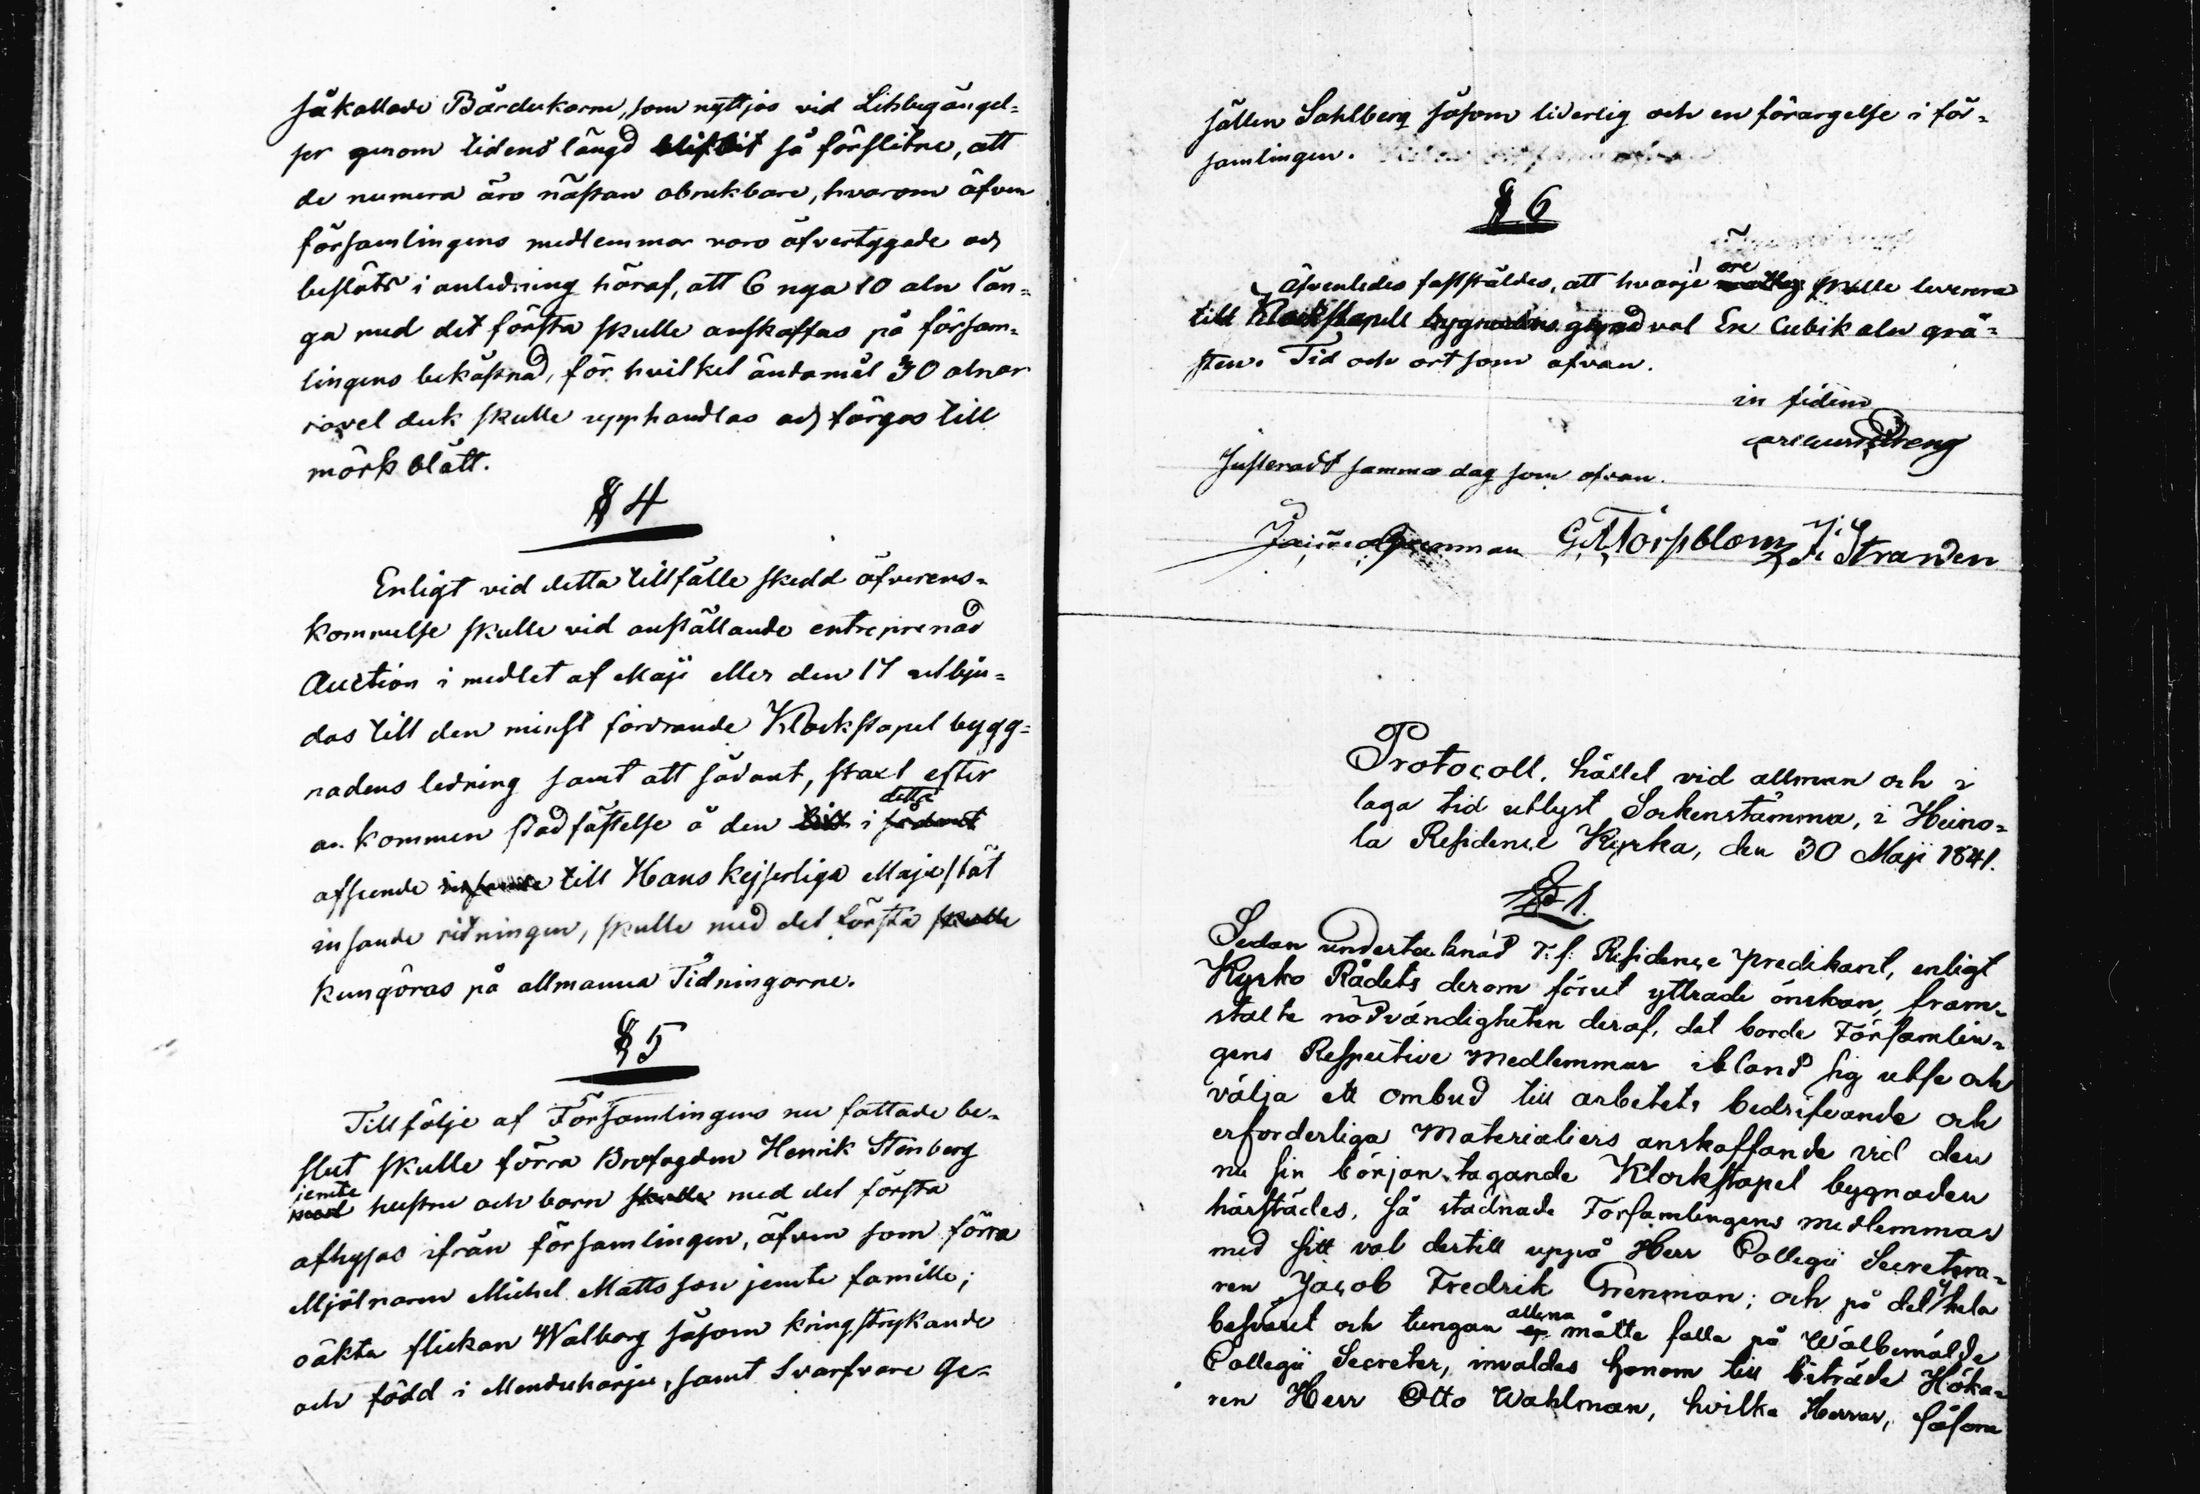 så kallade Bårdukarne, som nyttjas vid Likbegängel-
ser genom tidens längd blifvit så förslitne, att
de numera äro nästan obrukbare, hvarom äfven
församlingens medlemmar voro öfvertygade och
beslöts i anledning häraf, att 6 nya 10 aln lån-
ga med det första skulle anskaffas på försam-
lingens bekostnad, för hvilket ändamål 30 alnar
ravel duk skulle upphandlas och färgas till
mörk blått.
§ 4
Enligt vid detta tillfälle skedd öfverens-
kommelse skulle vid anställande entreprenad
Auction i medlet af Maji eller den 17 utbju-
das till den minst fordrande Klockstapel bygg-
nadens ledning samt att sådant, straxt efter
an kommen stadfästelse å den till i sådant detta
afseende till Hans Kejserliga Majestät
insände ritningen, skulle med det första skulle
kungöras på allmänna Tidningarne.
§ 5
Till följe af Församlingens nu fattade be-
slut skulle förra Brofogden Henrik Stenberg
med jemte hustru och barn skulle med det första
afhysas ifrån församlingen, äfven som förra
Mjölnaren Michel Mattsson jemte famille;
oäkta flickan Walborg såsom kringstrykande
och född i Menduharju, samt Svarfvare Ge-
sällen Sahlberg såsom liderlig och en förargelse i för-
samlingen.
§ 6
Äfvenledes fastställdes, att hvarje öre skulle leverera
till Klockstapels bygnadens grundval En Cubik aln grå-
sten. Tid och ort som ofvan.
in fidem
Streng
Justeradt samma dag som ofvan.
Grenman G. A. Törsblom J. Stranden
Protocoll, hållet vid allmän och i
laga tid utlyst Sockenstämma, i Heino-
la Residence Kyrka, den 30 Maji 1841.
§ 1.
Sedan undertecknad T. f. Residence predikant, enligt
Kyrko Rådets derom förut yttrade önskan, fram-
stält nödvändigheten deraf, det borde Församlin-
gens Respective Medlemmar ibland sig utse och
välja ett ombud till arbetets bedrifvande och
erforderliga Materialiers anskaffande vid den
nu sin början tagande Klockstapel bygnaden
härstädes, så stadnade Församlingens medlemmar
med sitt val dertill uppå Herr Collegii Secretera-
ren Jacob Fredrik Grenman; och på det ej hela
besväret och tungan allena måtte falla på Wälbemälde
Collegii Secreter, invaldes honom till biträde Höka-
ren Herr Otto Wahlman, hvilka Herrar, såsom